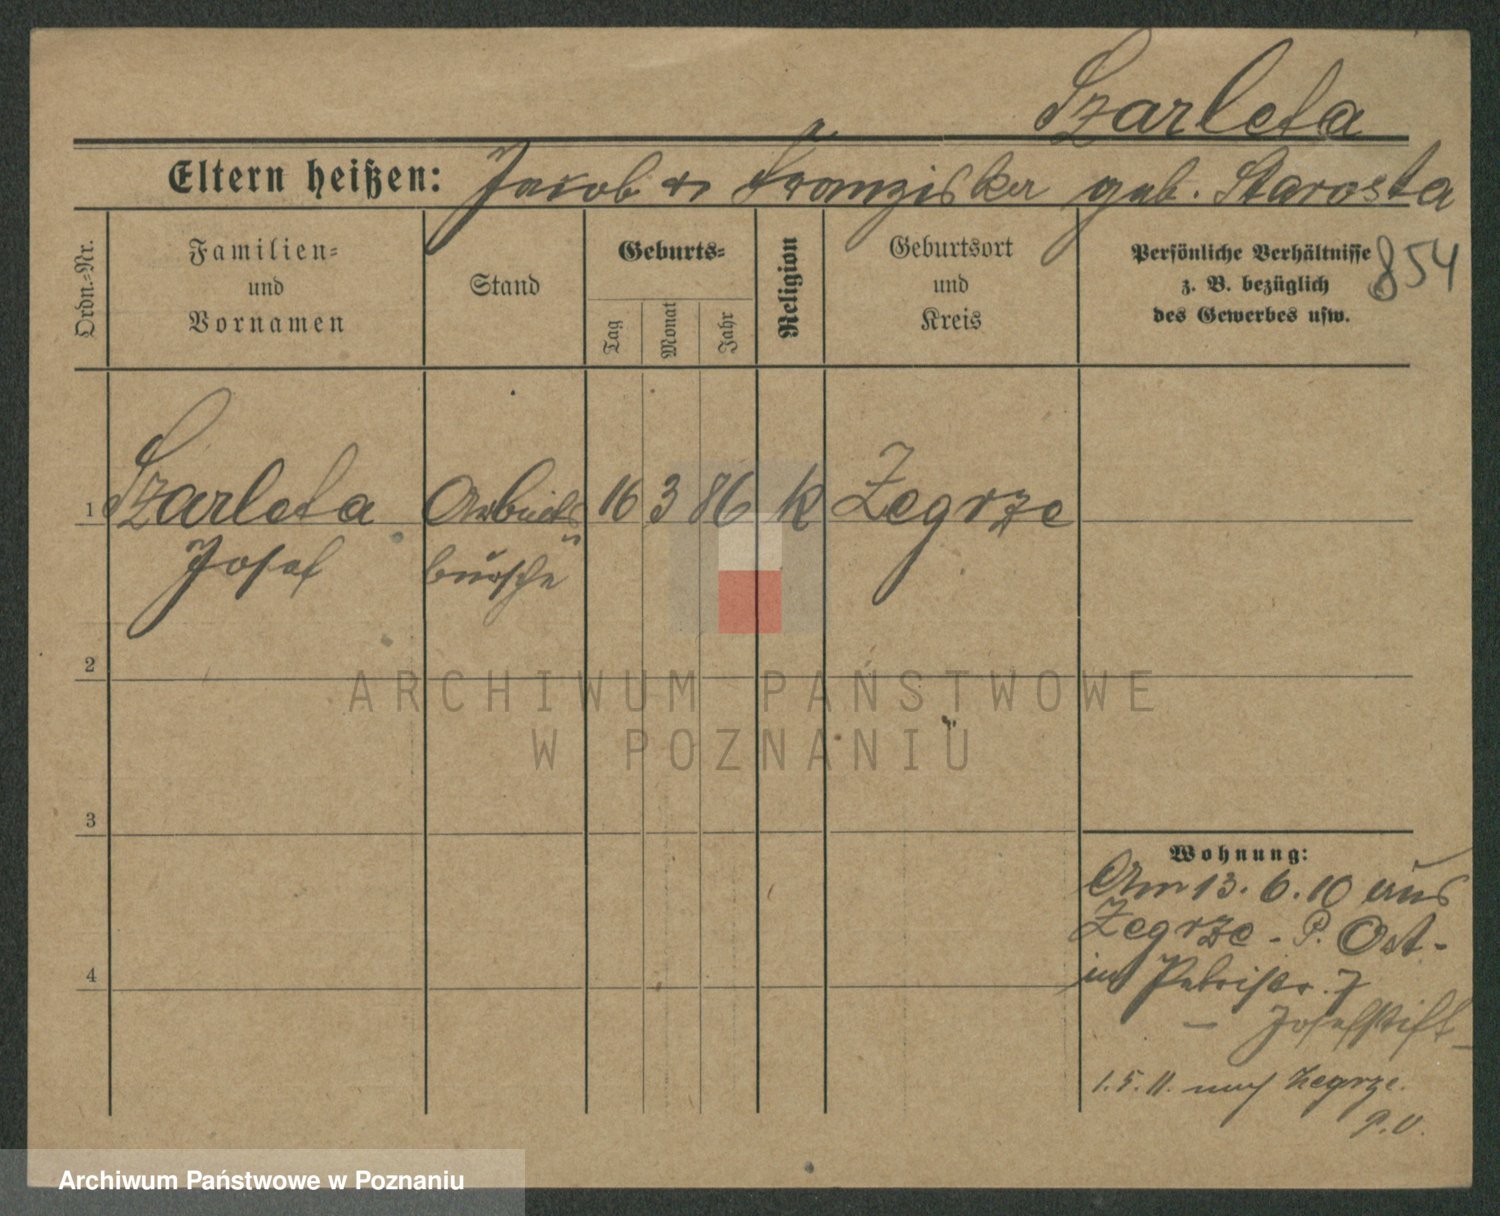 Szarleta
Eltern heißen: Jakob u Franziska geb. Starosta
Ordn.-Nr.
Familien-
und
Vornamen
Stand
Geburts-
Tag
Monat
Jahr
Religion
Geburtsort
und
Kreis
Persönliche Verhältnisse
z. B. bezüglich
des Gewerbes usw.
854
1 Szarleta Arbeits 16 3 86 k Zegrze
Josef bursche
2
ARCHIWUM PAŃSTWOWE
W POZNANIU
3
Wohnung:
Am 13. 6. 10 aus
Zegrze - P. Ost -
in Petristr. 7
4
- Josefstift -
1. 5. 11. nach Zegrze.
P. O.
Archiwum Państwowe w Poznaniu